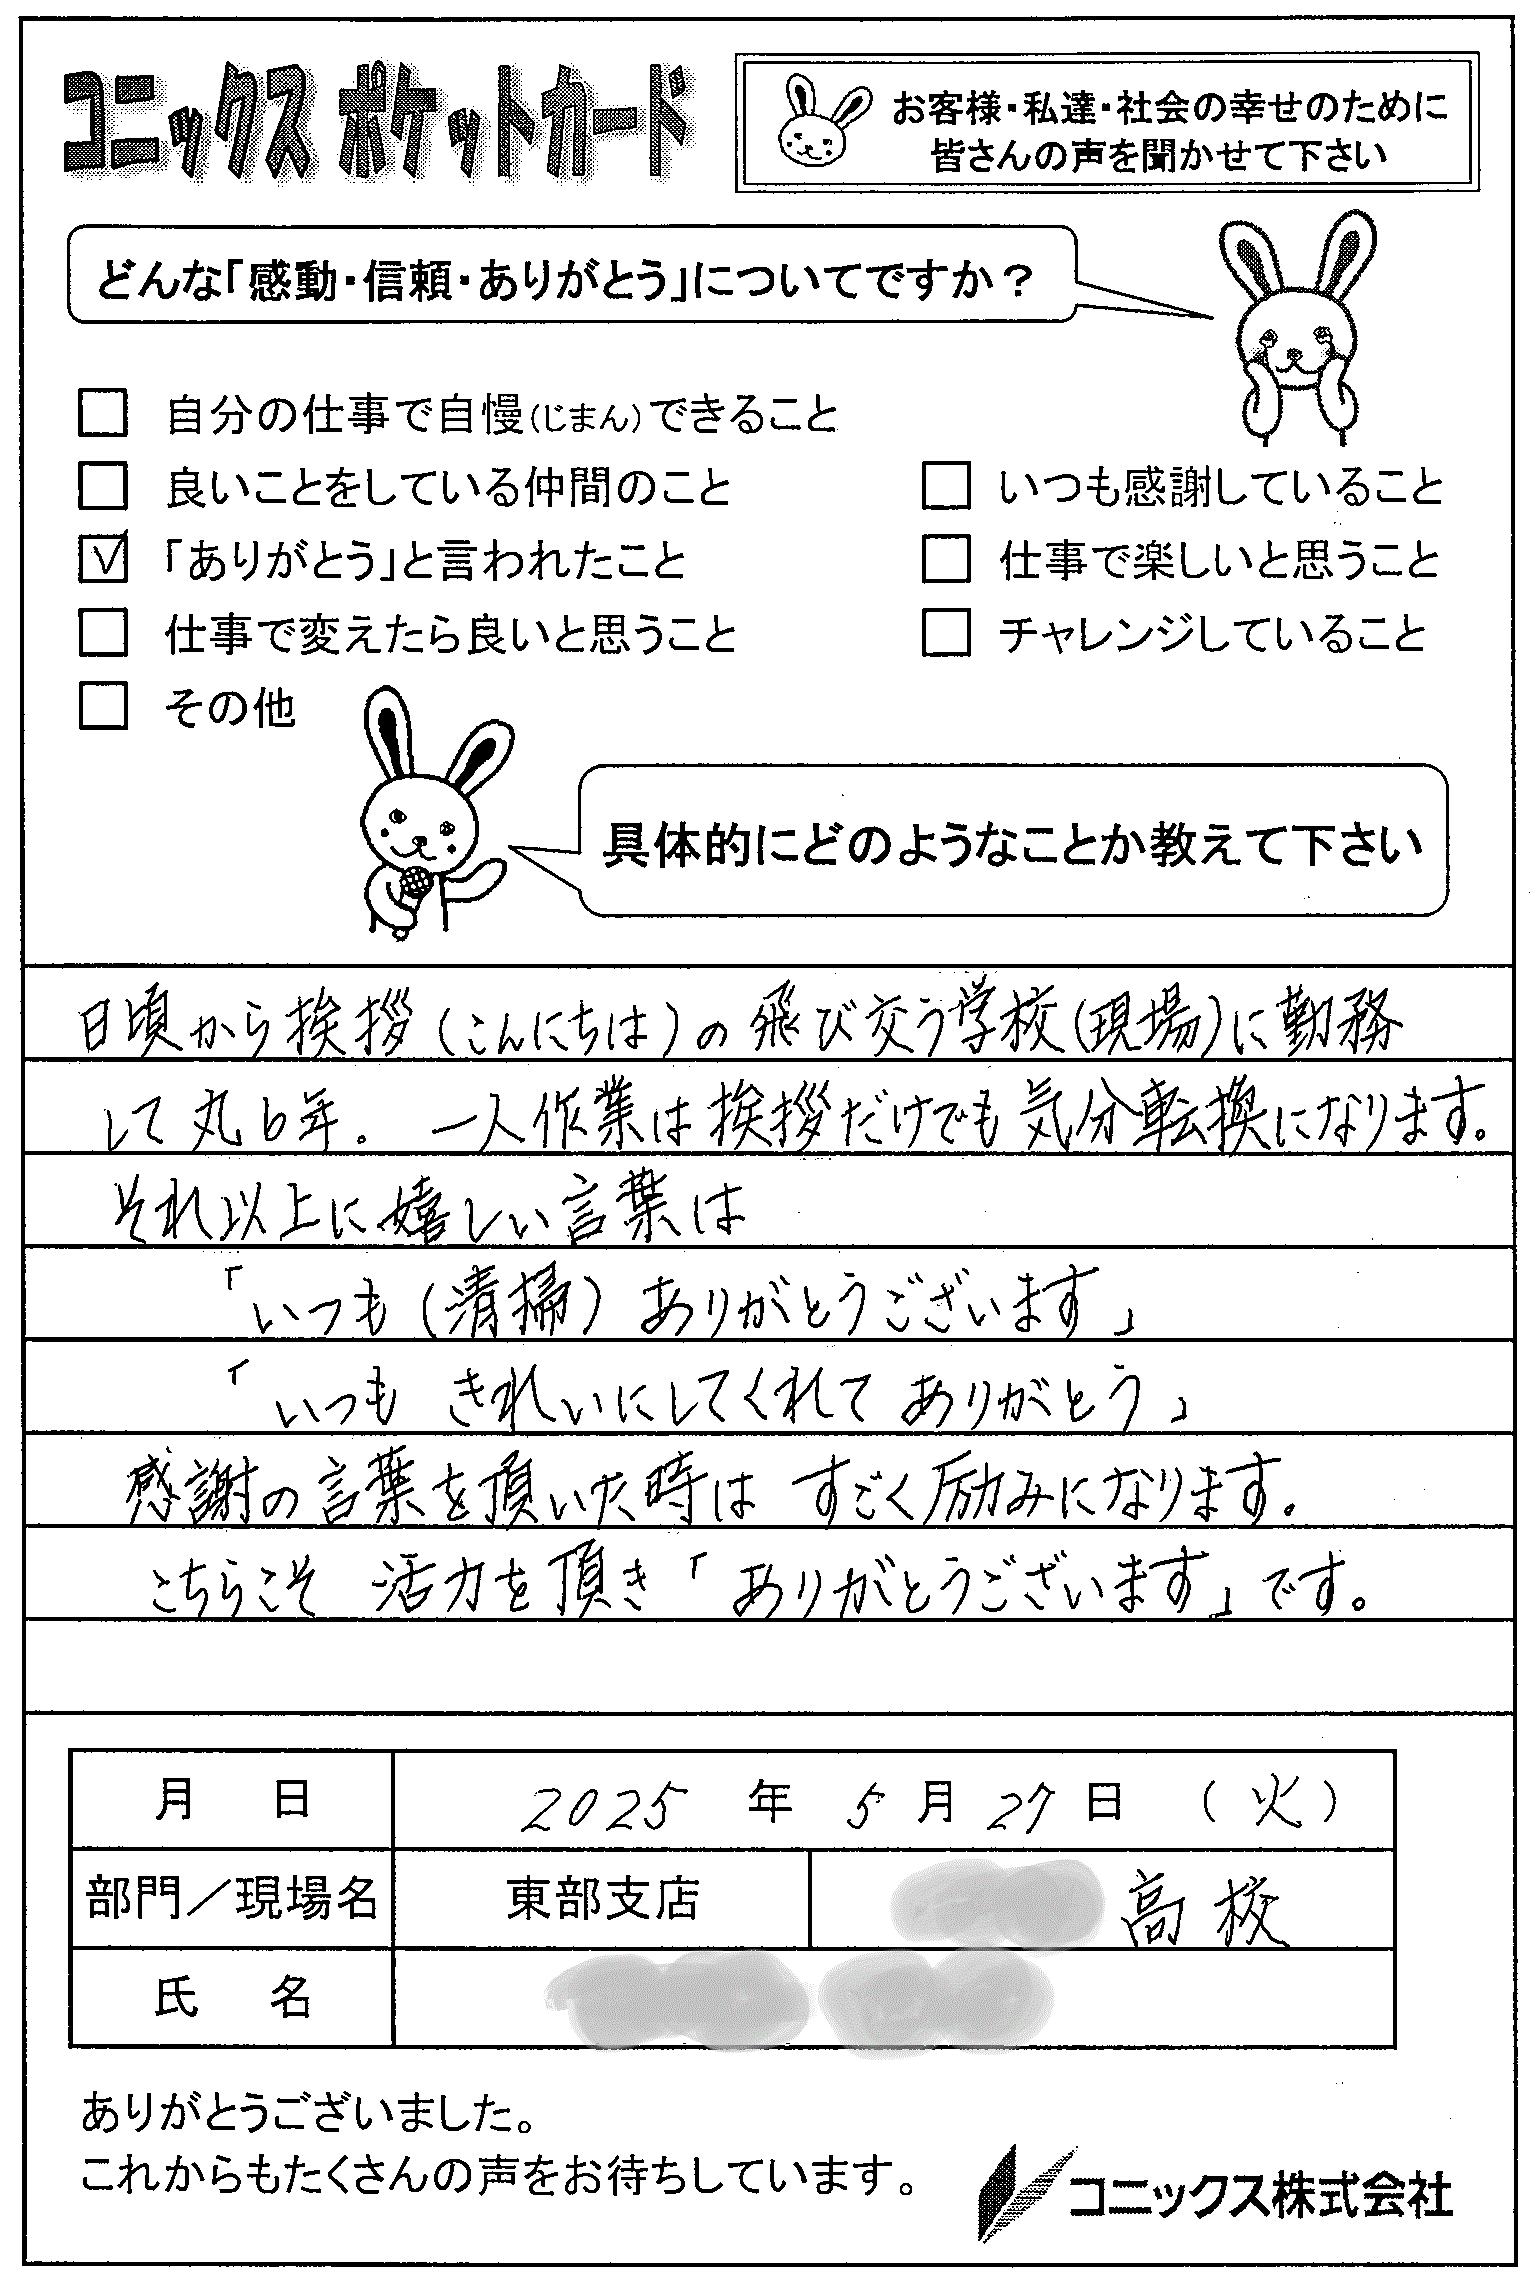 コニックス ポケットカード
お客様・私達・社会の幸せのために
皆さんの声を聞かせて下さい
どんな「感動・信頼・ありがとう」についてですか？
自分の仕事で自慢(じまん)できること
良いことをしている仲間のこと
いつも感謝していること
「ありがとう」と言われたこと
仕事で楽しいと思うこと
仕事で変えたら良いと思うこと
チャレンジしていること
その他
具体的にどのようなことか教えて下さい
日頃から挨拶(こんにちは)の飛び交う学校(現場)に勤務
して丸6年。一人作業は挨拶だけでも気分転換になります。
それ以上に嬉しい言葉は
「いつも(清掃)ありがとうございます」
「いつも きれいにしてくれて ありがとう」
感謝の言葉を頂いた時は すごく励みになります。
こちらこそ 活力を頂き「ありがとうございます」です。
月 日 2025 年 5 月 27 日 (火)
部門／現場名 東部支店 高校
氏 名
ありがとうございました。
これからもたくさんの声をお待ちしています。
コニックス株式会社